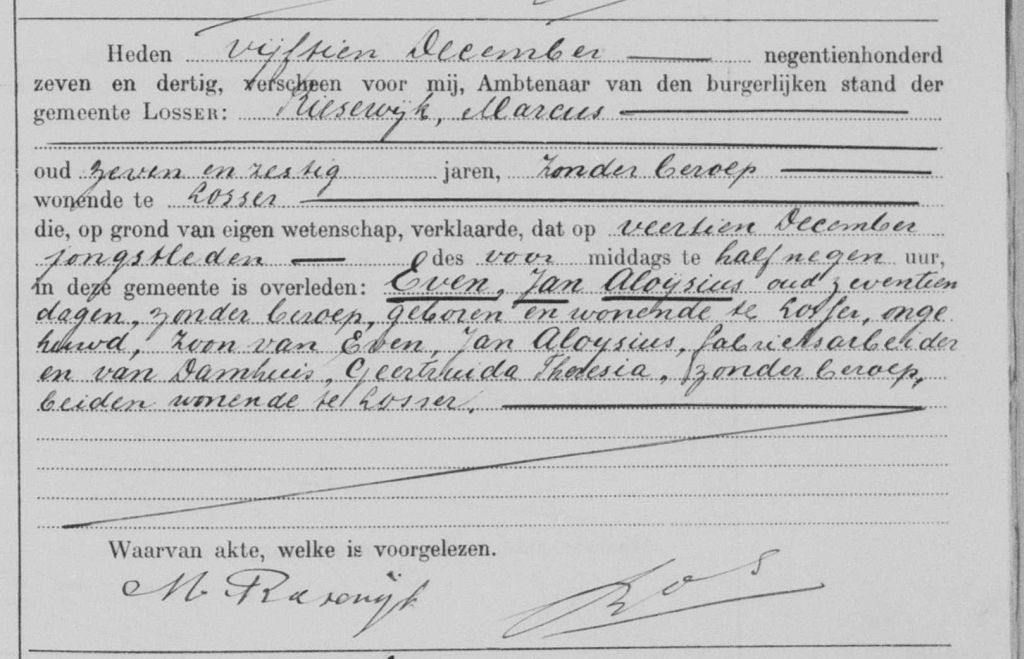 Heden vijftien December negentienhonderd
zeven en dertig, verscheen voor mij, Ambtenaar van den burgerlijken stand der
gemeente LOSSER: Riesewijk, Marcus
oud zeven en zestig jaren, zonder beroep
wonende te Losser
die, op grond van eigen wetenschap, verklaarde, dat op veertien December
jongstleden des voor middags te half negen uur,
in deze gemeente is overleden: Even, Jan Aloysius oud zeventien
dagen, zonder beroep, geboren en wonende te Losser, onge
huwd, zoon van Even, Jan Aloysius, fabrieksarbeider
en van Damhuis, Geertruida Theresia, zonder beroep,
beiden wonende te Losser.
Waarvan akte, welke is voorgelezen.
M